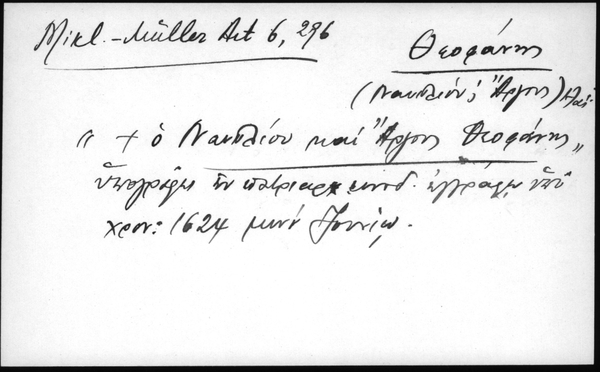 Mikl.-Müller Act 6, 296
Θεοφάνης
(Ναυπλίου; Ἄργους)
„ + ὁ Ναυπλίου καί Ἄργους Θεοφάνης „
ὑπογράφει ἐν πατριαρχ. συνοδ. ἐγγράφῳ ὑπό
χρον: 1624 μηνί Ἰουνίῳ.